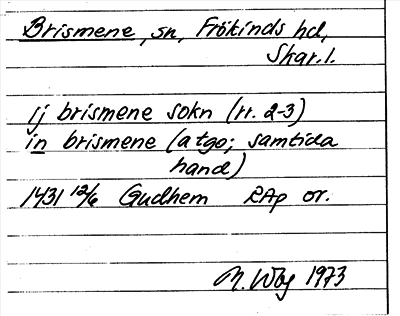 Brismene, sn, Frökinds hd,
Skar. l.
ij brismene sokn (rr. 2-3)
in brismene (atgo; samtida
hand)
1431 12/6 Gudhem RAp or.
N. Wbg 1973